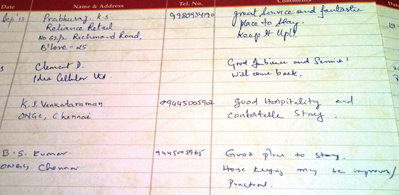 Date Name & Address Tel. No. Comments
Sep '12 Prabhuraj. K.S 9980934190 great Service and fantastic
Reliance Retail place to stay.
No 62/2 Richmond Road, Keep it Up!
B'lore - 25
Clement D. Good Ambience and Service!
Idea Cellular Ltd will come back.
K.S. Venkataraman 09445005902 Good Hospitality and
ONGC, Chennai Comfortable Stay.
B.S. Kumar 9445005965 Good place to stay.
ONGC, Chennai House keeping may be improved/